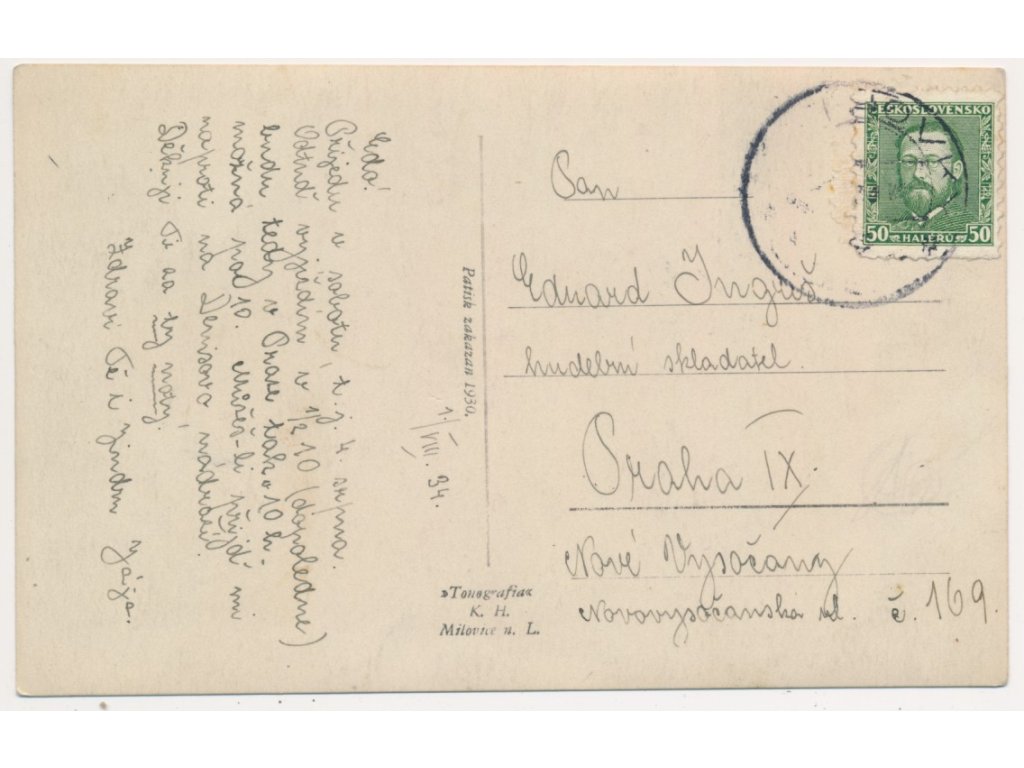 Edo!
Přijedu v sobotu t. j. 4. srpna.
Odtud vyjíždím v 1/2 10 (dopoledne)
budu tedy v Praze tak o 10 h.
možná po 10. Můžeš-li přijď mi
naproti na Denisovo nádraží!
Děkuji Ti za ty noty.
Zdraví Tě i
1./VIII. 34.
Patisk zakázán 1930.
»Tonografia«
K. H.
Milovice n. L.
ČESKOSLOVENSKO
50 HALÉŘŮ 50
Pan
Eduard Ingriš
hudební skladatel.
Praha IX.
Nové Vysočany
Novovysočanská ul. č. 169.